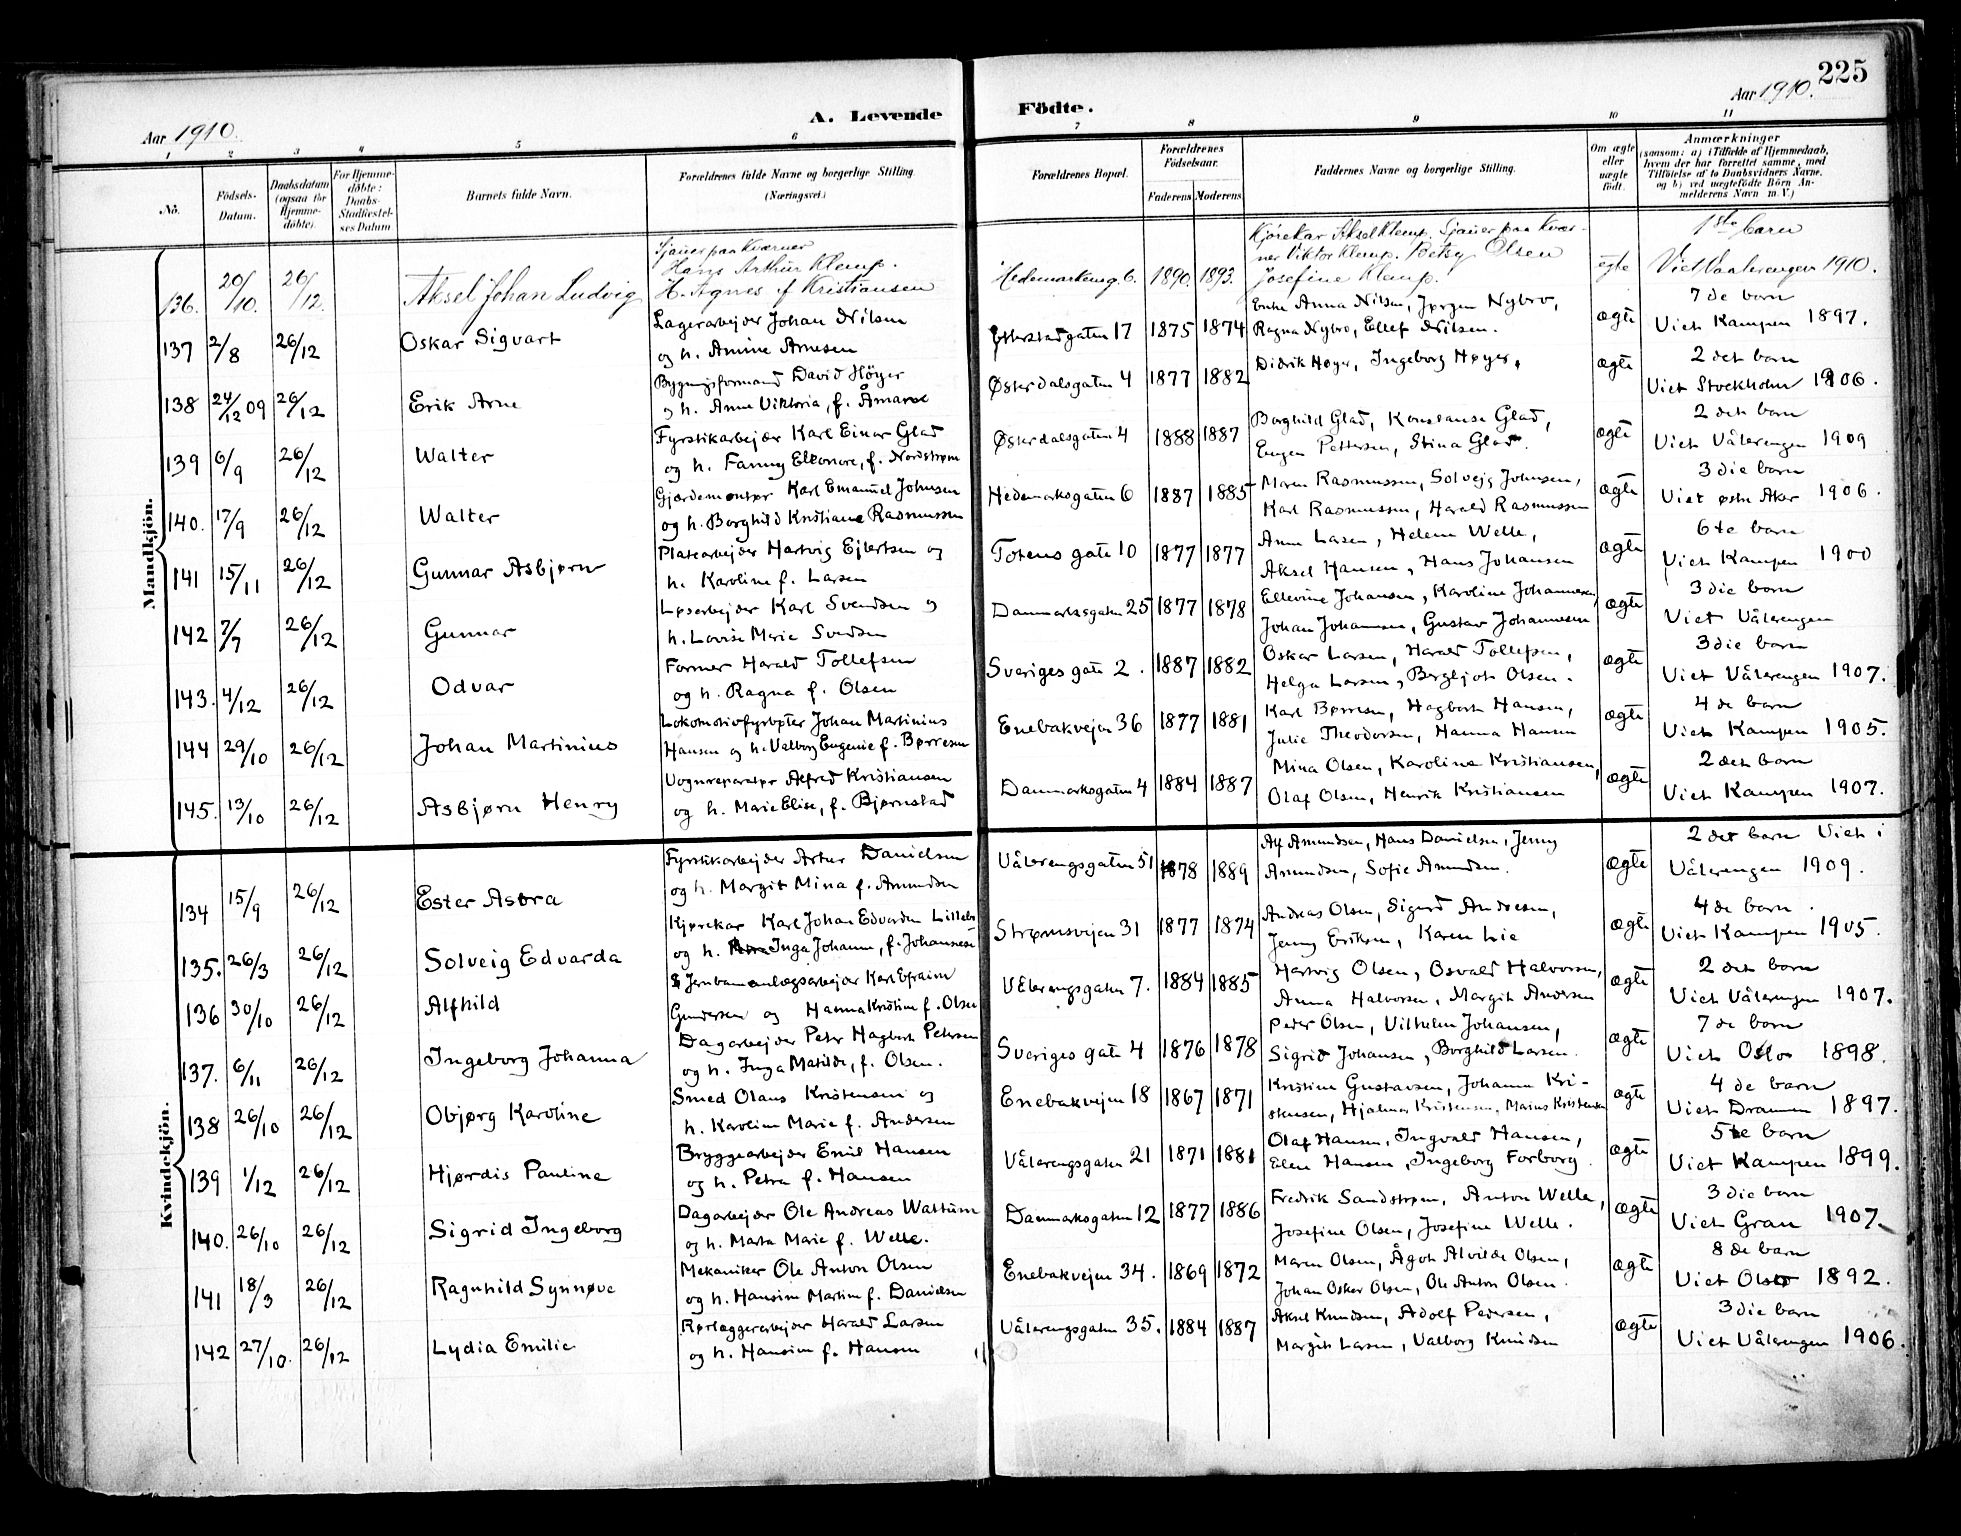 225
Aar 1910.
A. Levende
Födte.
Aar 1910.
1 2 3 4 5 6 7 8 9 10 11
No.
Födsels-Datum.
Daabsdatum (ogsaa for Hjemme-döbte).
For Hjemme-döbte: Daabs-Stadfæstel-ses Datum
Barnets fulde Navn.
Forældrenes fulde Navne og borgerlige Stilling.
(Næringsvei.)
Forældrenes Bopæl.
Forældrenes Födselsaar.
Faderens Moderens
Faddernes Navne og borgerlige Stilling.
Om ægte eller uægte födt.
Anmærkninger
(saasom: a) i Tilfælde af Hjemmedaab, hvem der har forrettet samme, med Tilföielse af to Daabsvidners Navne, og b) ved uægtefödte Börn Anmelderens Navn m. V.)
Mandkjön.
136. 20/10. 26/12. Aksel Johan Ludvig
Sjauer paa Kværner
Hans Arthur Klemp.
H. Agnes f Kristiansen
Hedemarkensg. 6. 1890. 1893.
Kjørekar Aksel Klemp. Sjauer paa Kvær-
ner Viktor Klemp. Betsy Olsen
Josefine Klemp.
ægte
1ste barn
Viet Vaalerengen 1910.
137 2/8 26/12 Oskar Sigvart
Lagerarbejder Johan Nilsen
og h. Amine Arnesen
Etterstadgaten 17 1875 1874
Enke Anna Nilsen, Jørgen Nybro,
Ragna Nybro, Ellef Nilsen.
ægte
7 de barn
Viet Kampen 1897.
138 24/12 09 26/12 Erik Arne
Bygningsformand David Höyer
og h. Anne Viktoria, f. Åmarke
Østerdalsgaten 4 1877 1882
Didrik Høyer, Ingeborg Høyer,
ægte
2 det barn
Viet Stockholm 1906.
139 6/9 26/12 Walter
Fyrstikarbejder Karl Einar Glad
og h. Fanny Elleonore, f. Nordstrøm
Østerdalsgaten 4 1888 1887
Borghild Glad, Konstanse Glad,
Eugen Pettersen, Stina Glad.
ægte
2 det barn
Viet Vålerengen 1909
140. 17/9 26/12 Walter
Gjærdemontør Karl Emanuel Johnsen
og h. Borghild Kristiane Rasmussen
Hedemarksgaten 6 1887 1885
Maren Rasmussen, Solvejg Johnsen,
Karl Rasmussen, Harald Rasmussen
ægte
3 die barn
Viet østre Aker 1906.
141 15/11 26/12 Gunnar Asbjørn
Platearbejder Hartvig Ejlertsen og
h. Karoline f. Larsen
Totens gate 10 1877 1877
Anne Larsen, Helene Welle,
Aksel Hansen, Hans Johansen
ægte
6 te barn
Viet Kampen 1900
142 7/7 26/12 Gunnar
Løsarbejder Karl Svendsen og
h. Lovise Marie Svendsen
Danmarksgaten 25 1877 1878
Ellevine Johansen, Karoline Johannesen,
Johan Johannsen, Gustav Johannesen
ægte
3 die barn
Viet Vålerengen
143. 4/12 26/12 Odvar
Former Harald Tollefsen
og h. Ragna f. Olsen
Sveriges gate 2. 1887 1882
Oskar Larsen, Harald Tollefsen,
Helga Larsen, Bergljot Olsen.
ægte
3 die barn
Viet Vålerengen 1907.
144 29/10 26/12 Johan Martinius
Lokomotivfyrbøter Johan Martinius
Hansen og h. Valborg Eugenie f. Børresen
Enebakvejen 36 1877 1881
Karl Børresen, Hagbarth Hansen,
Julie Theodorsen, Hanna Hansen
ægte
4 de barn
Viet Kampen 1905.
145. 13/10 26/12 Asbjørn Henry
Vognreparatør Alfred Kristiansen
og h. Marie Elise, f. Bjørnstad
Danmarksgaten 4 1884 1887
Mina Olsen, Karoline Kristiansen,
Olaf Olsen, Henrik Kristiansen
ægte
2 det barn
Viet Kampen 1907.
Kvindekjön.
134 15/9 26/12 Ester Astra
Fyrstikarbejder Artur Danielsen
og h. Margit Mina f. Amundsen
Vålerengsgaten 51 1878 1889
Alf Amundsen, Hans Danielsen, Jenny
Amundsen, Sofie Amundsen.
ægte
2 det barn Viet i
Vålerengen 1909.
135. 26/3 26/12 Solveig Edvarda
Kjørekar Karl Johan Edvardsen
og h. Inga Johanne, f. Johannesen
Strømsvejen 31 1877 1874
Andreas Olsen, Sigurd Andresen,
Jenny Eriksen, Karen Lie
ægte
4 de barn.
Viet Kampen 1905.
136 30/10 26/12 Alfhild
Jernbaneanlægsarbejder Karl Efraim
Gundersen og Hanna Kristine f. Olsen
Vålerengsgaten 7. 1884 1885
Hartvig Olsen, Osvald Halvorsen,
Anna Halvorsen, Margit Andersen
ægte
2 det barn
Viet Vålerengen 1907.
137. 6/11 26/12 Ingeborg Johanna
Dagarbejder Peter Hagbart Petersen
og h. Inga Matilde, f. Olsen.
Sveriges gate 4 1876 1878
Peder Olsen, Vilhelm Johansen,
Sigrid Johansen, Borghild Larsen.
ægte
7 de barn
Viet Oslo 1898.
138 26/10 26/12 Objørg Karoline
Smed Olaus Kristensen og
h. Karoline Marie f. Andersen
Enebakvejen 18 1867 1871
Kristine Gustavsen, Johanne Kri-
stensen, Hjalmar Kristensen, Marius Kristensen
ægte
4 de barn
Viet Drammen 1897.
139 1/12 26/12 Hjørdis Pauline
Bryggearbejder Emil Hansen
og h. Petra f. Hansen
Vålerengsgaten 21 1871 1881
Olaf Hansen, Ingvald Hansen,
Elen Hansen, Ingeborg Forborg.
ægte
5 te barn
Viet Kampen 1899.
140. 26/10 26/12 Sigrid Ingeborg
Dagarbejder Ole Andreas Wattum
og h. Marta Marie f. Welle.
Danmarksgaten 12 1877 1886
Fredrik Sandstrøm, Anton Welle,
Josefine Olsen, Josefine Welle.
ægte
3 die barn
Viet Gran 1907.
141 18/3 26/12 Ragnhild Synnøve
Mekaniker Ole Anton Olsen
og h. Hansine Martine f. Danielsen
Enebakvejen 34. 1869 1872
Maren Olsen, Ågot Alvilde Olsen,
Johan Oskar Olsen, Ole Anton Olsen.
ægte
8 de barn
Viet Oslo 1892.
142 27/10. 26/12 Lydia Emilie
Rørlæggerarbejder Harald Larsen
og h. Hansine f. Hansen
Vålerengsgaten 35. 1884 1887
Aksel Knudsen, Adolf Pedersen,
Margit Larsen, Valborg Knudsen
ægte
3 die barn
Viet Vålerengen 1906.